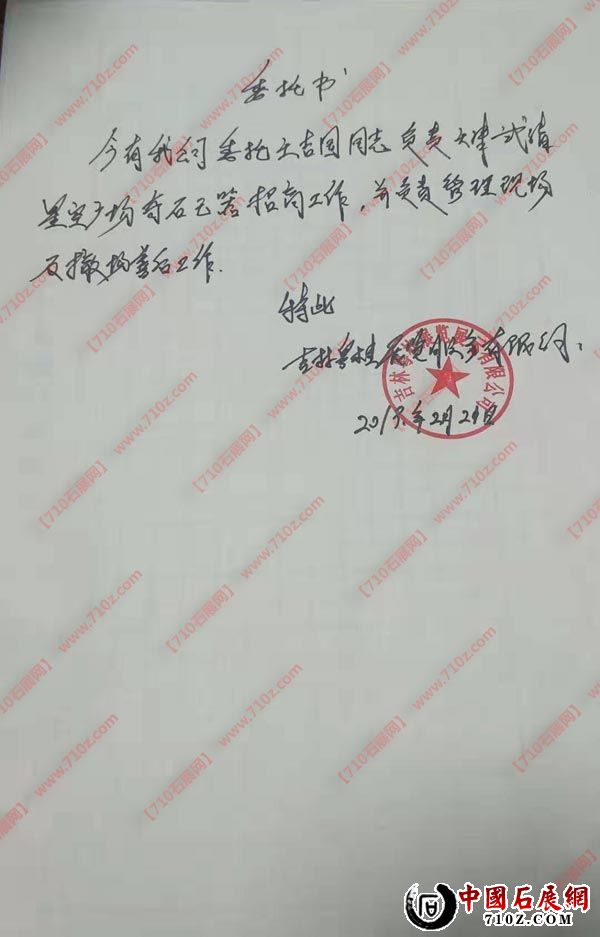 委托书
今有我公司委托王吉国同志负责天津武清
星空广场奇石玉器招商工作，并负责管理现场
及撤场善后工作.
特此
吉林 展览服务有限公司
年2月2 日
吉林 展览 有限公司
【710石展网】 www.710z.com
中國石展網
710Z.COM